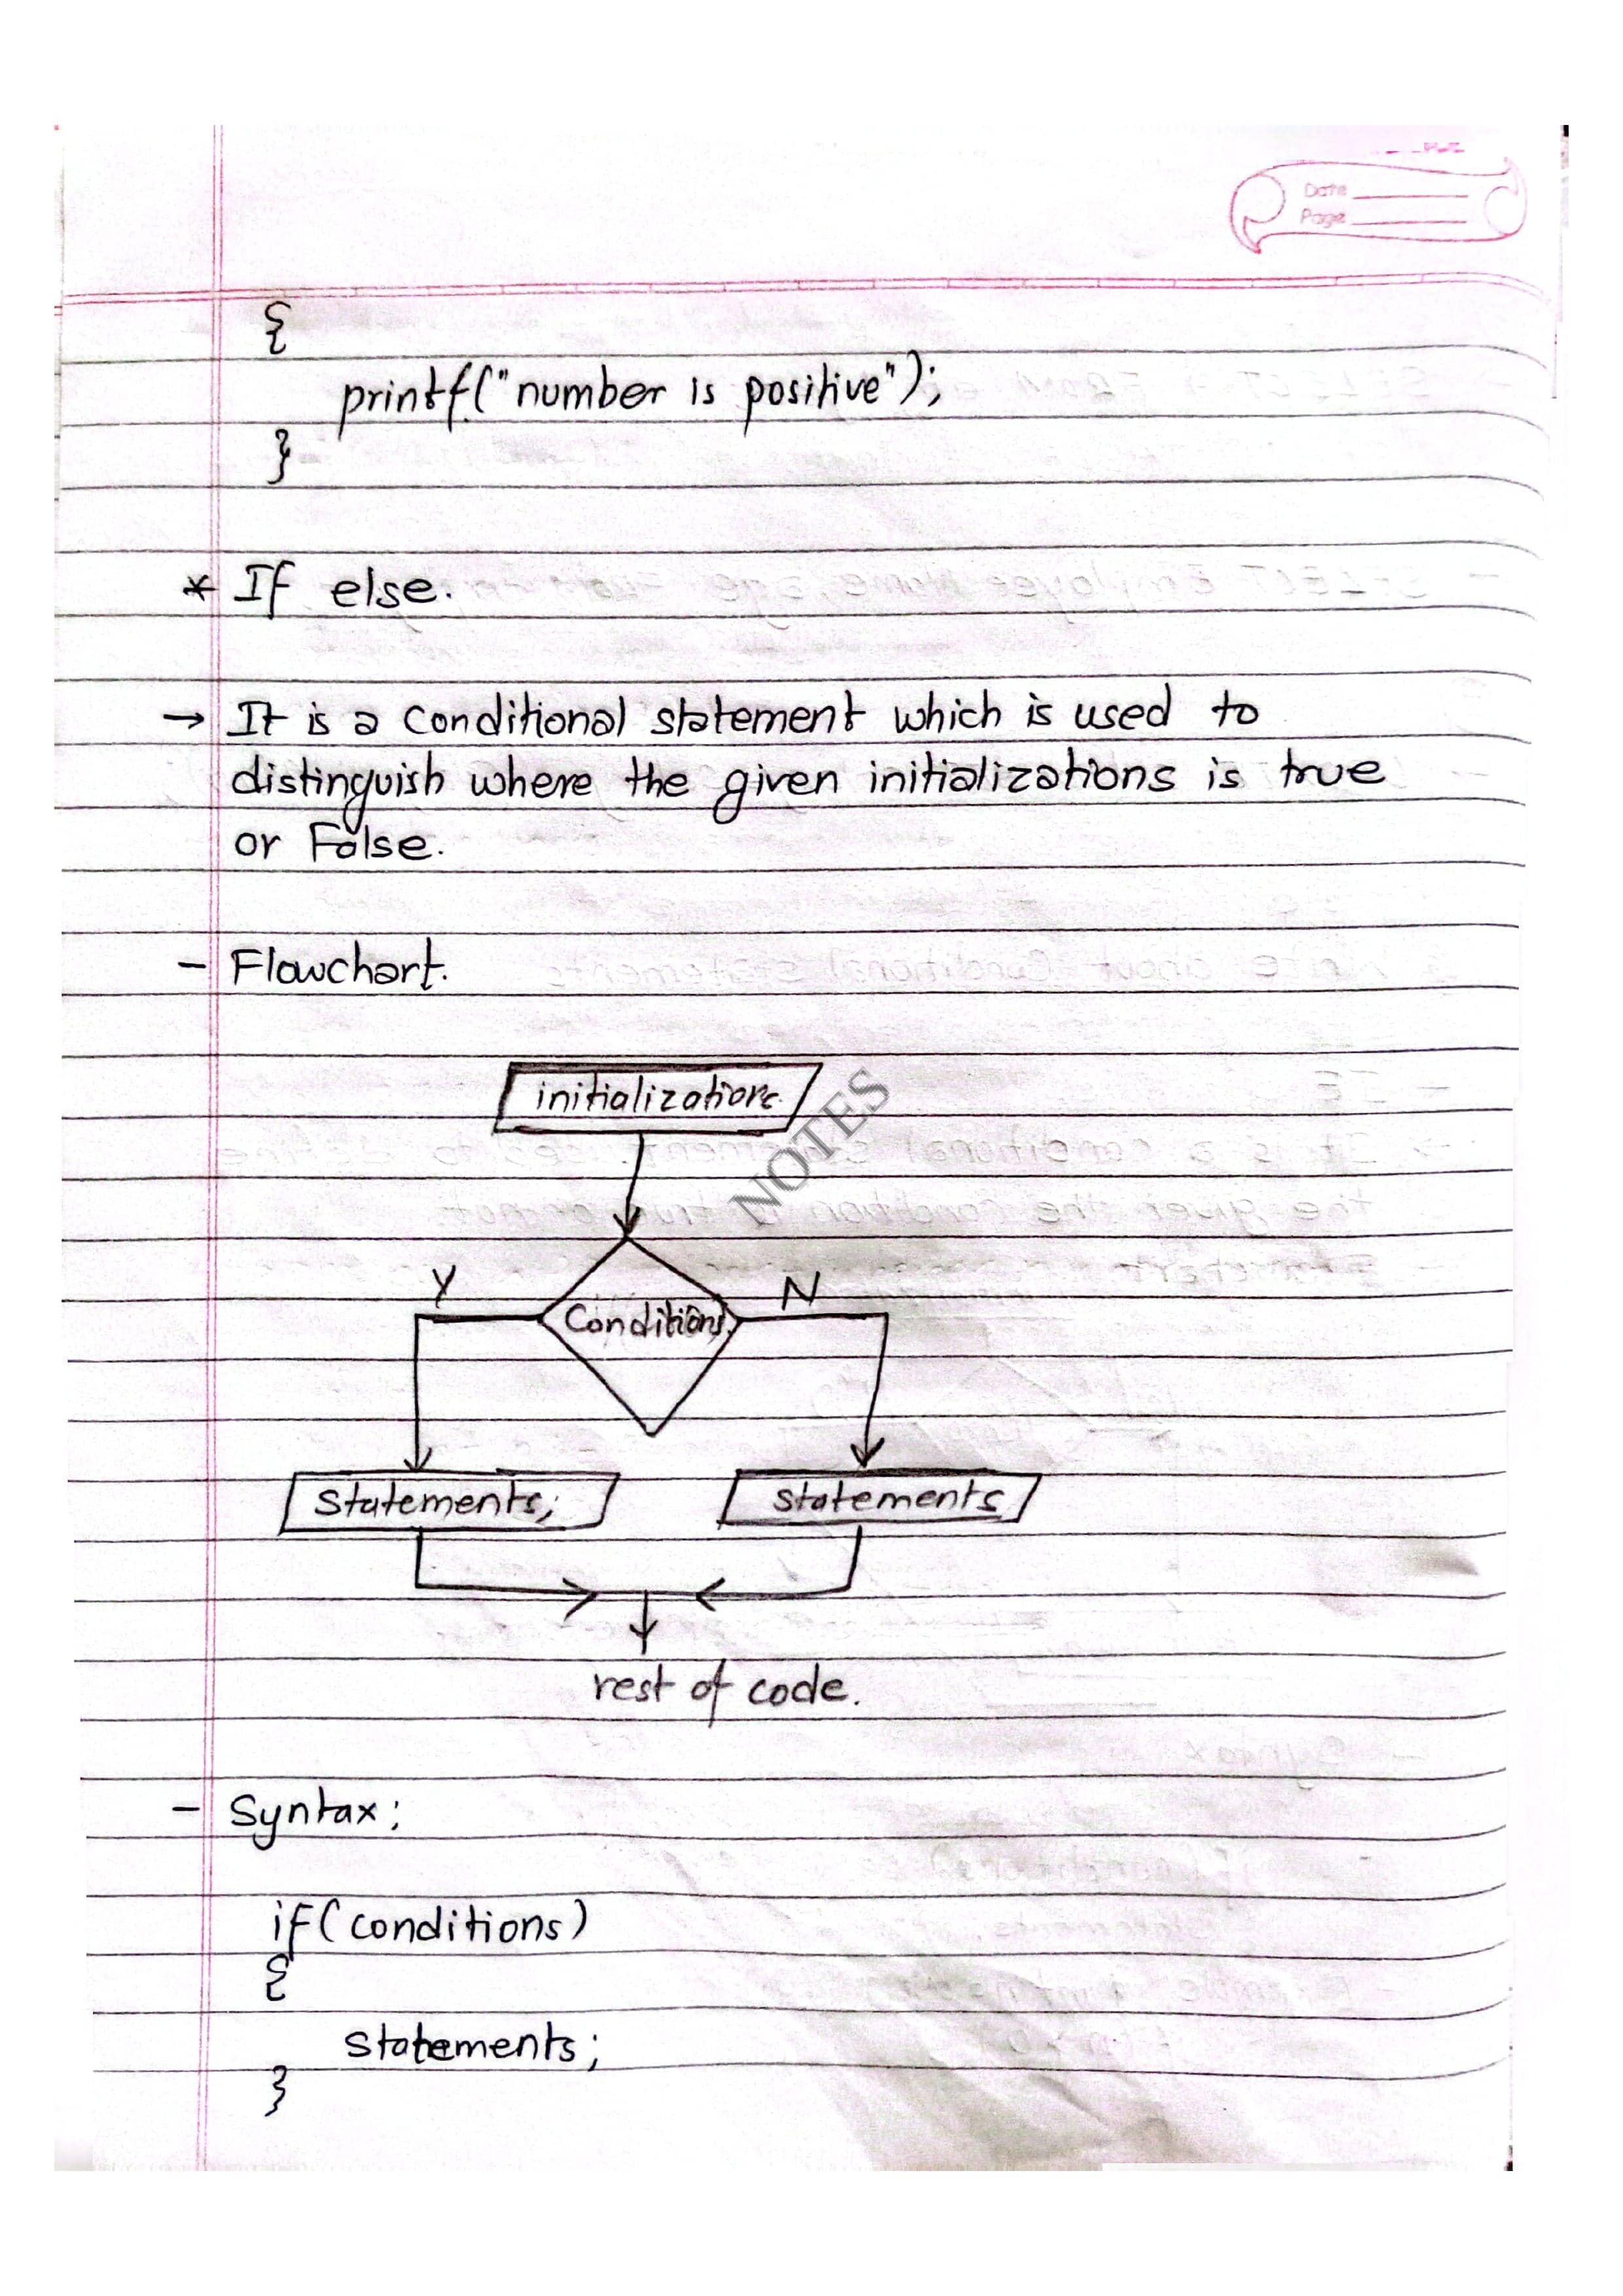 Date
Page
{
printf("number is positive");
}
* If else.
→ It is a conditional statement which is used to
distinguish where the given initializations is true
or False.
- Flowchart.
initializations
NOTES
Y
N
Conditions
Statements;
statements
rest of code.
- Syntax:
if(conditions)
{
statements;
}